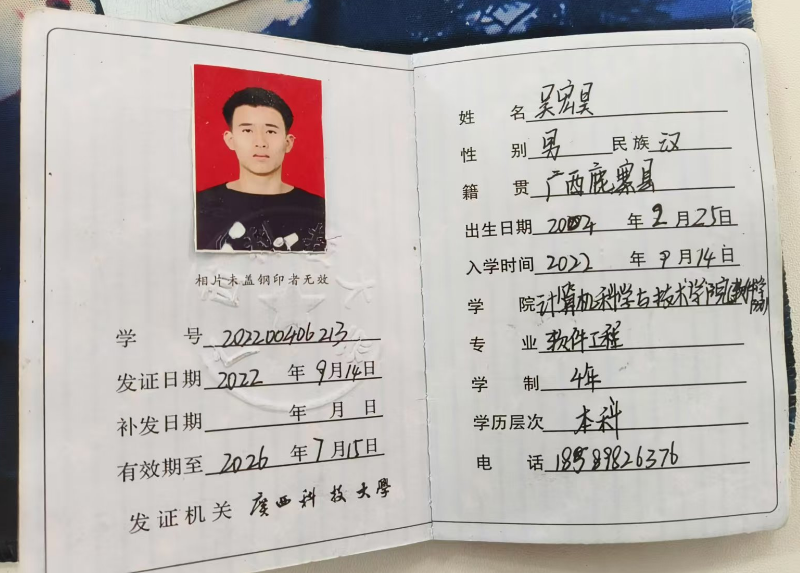 相片未盖钢印者无效
学 号 202200406213
发证日期 2022 年 9 月 14 日
补发日期 年 月 日
有效期至 2026 年 7 月 15 日
发证机关 廣西科技大學
姓 名 吴宏昊
性 别 男 民族 汉
籍 贯 广西鹿寨县
出生日期 2004 年 2 月 25 日
入学时间 2022 年 9 月 14 日
学 院 计算机科学与技术学院(软件学院)
专 业 软件工程
学 制 4年
学历层次 本科
电 话 18589826376